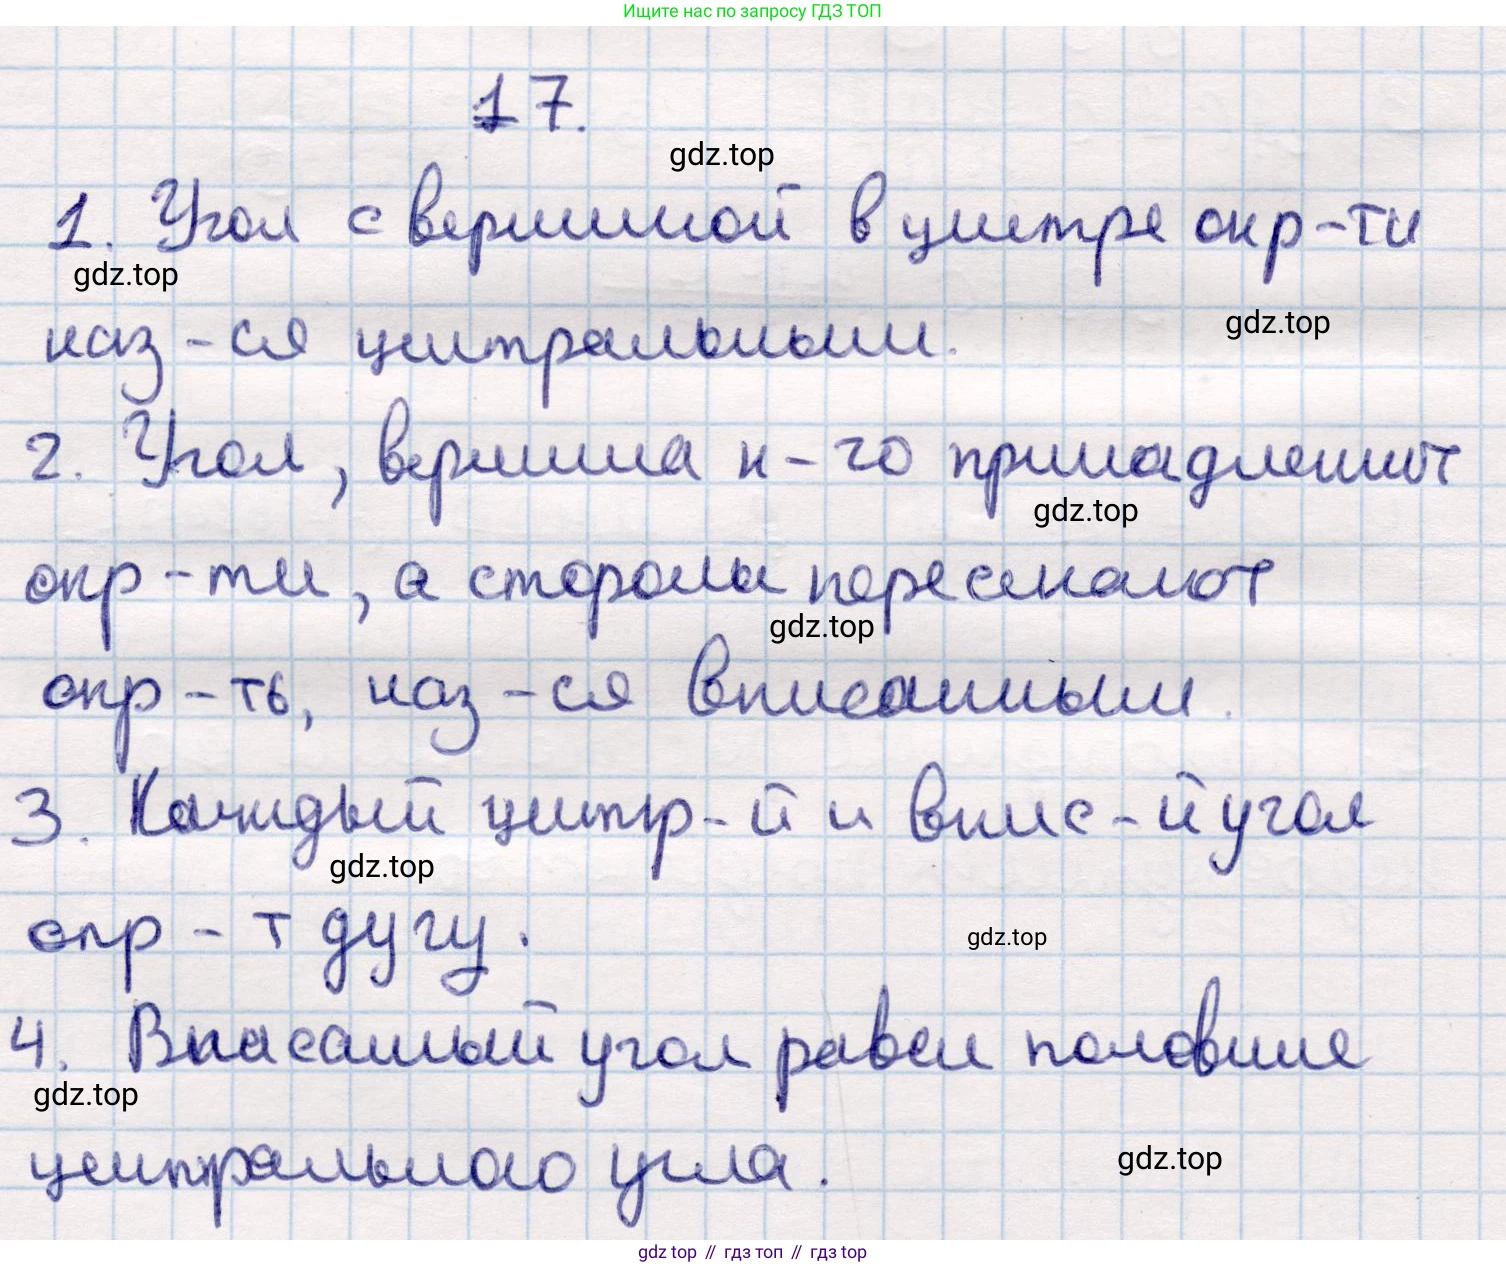 Ищите нас по запросу ГДЗ ТОП
17.
gdz.top
1. Угол с вершиной в центре окр-ти
gdz.top
gdz.top
наз-ся центральным.
2. Угол, вершина к-го принадлежит
gdz.top
окр-ти, а стороны пересекают
gdz.top
окр-ть, наз-ся вписанным.
3. Каждый центр-й и впис-й угол
gdz.top
опр-т дугу.
gdz.top
4. Вписанный угол равен половине
gdz.top
центрального угла.
gdz.top
gdz top // гдз топ // гдз top